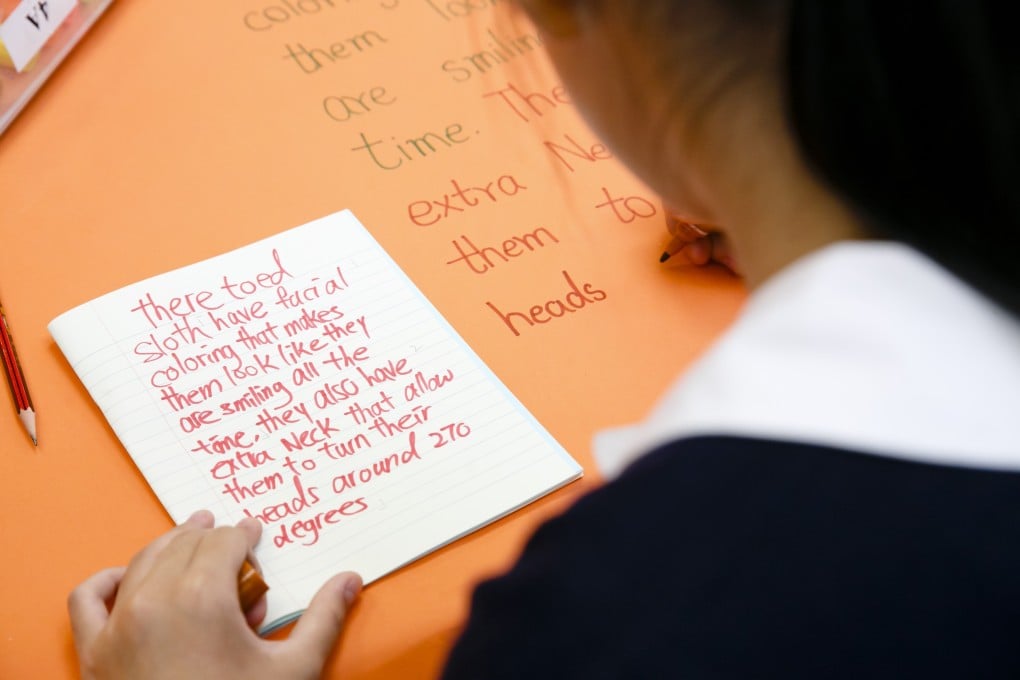 there toed
sloth have facial
coloring that makes
them look like they
are smiling all the
time, they also have
extra Neck that allow
them to turn their
heads around 270
degrees
coloring
them look
are smiling
time. The
extra Ne
them to
heads